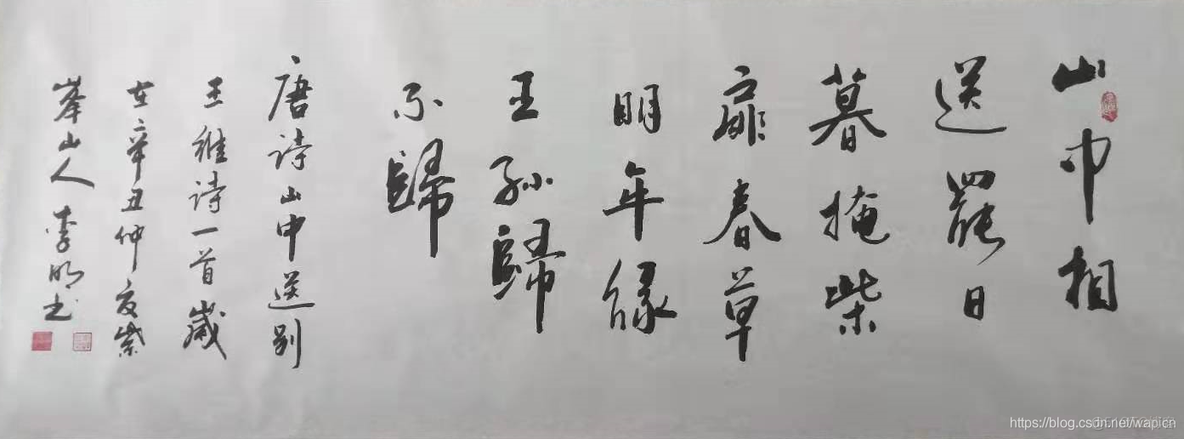 山中相
送罷日
暮掩柴
扉春草
明年緑
王孫歸
不歸
唐诗山中送别
王維诗一首歲
在辛丑仲夏紫
峯山人李明书
https://blog.csdn.net/wapicn